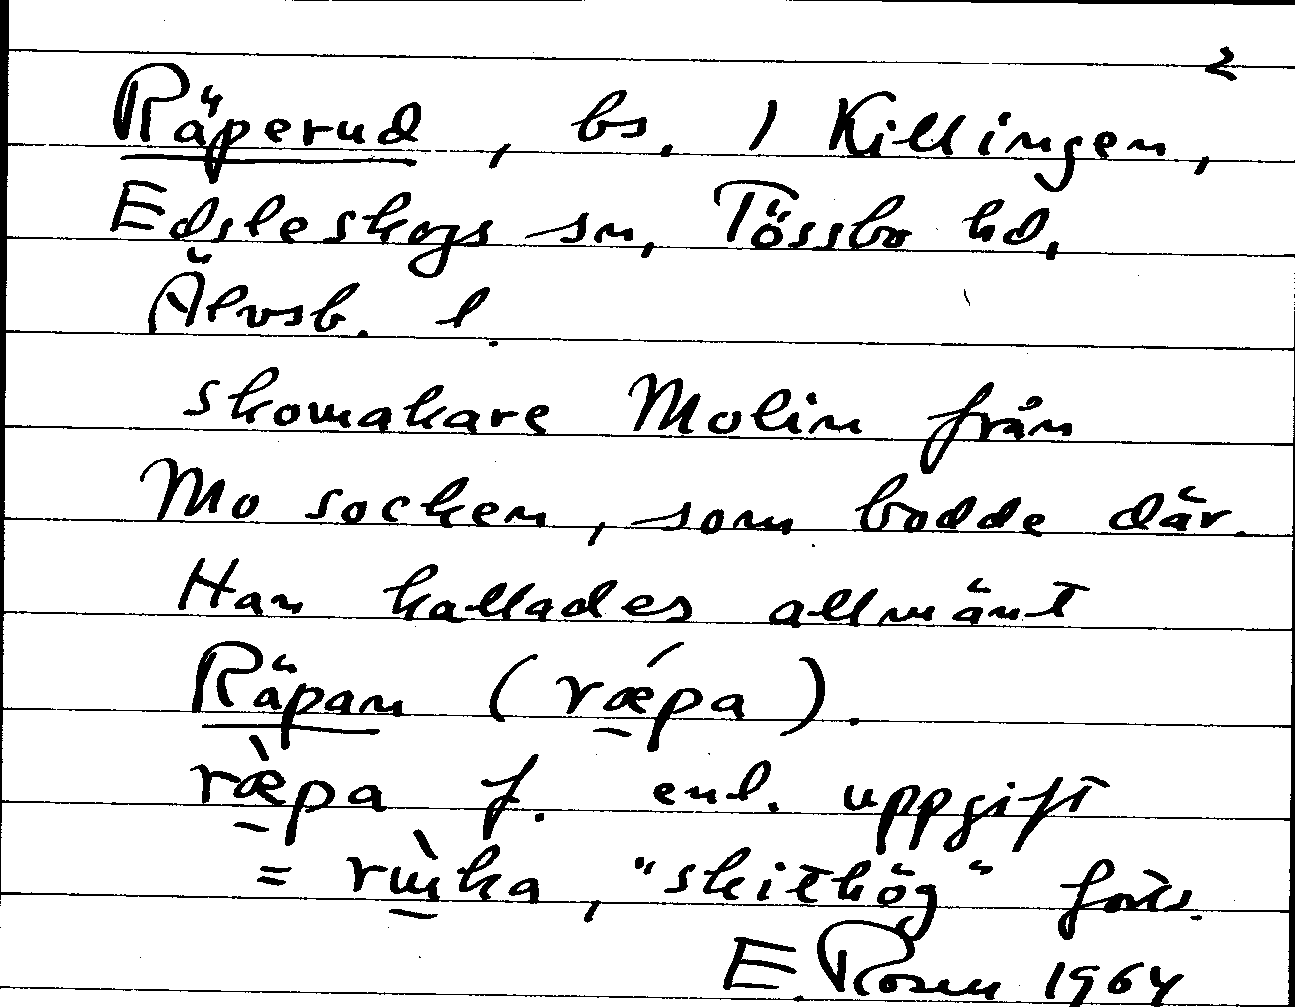 2
Räperud, bs. / Killingen,
Edsleskogs sn, Tössbo hd,
Älvsb. l.
skomakare Molin från
Mo socken, som bodde där.
Han kallades allmänt
Räpan (rǽ̠pa).
ræ̠̀pa f. enl. uppgift
= "skithög" forts.
E. Rosen 1964